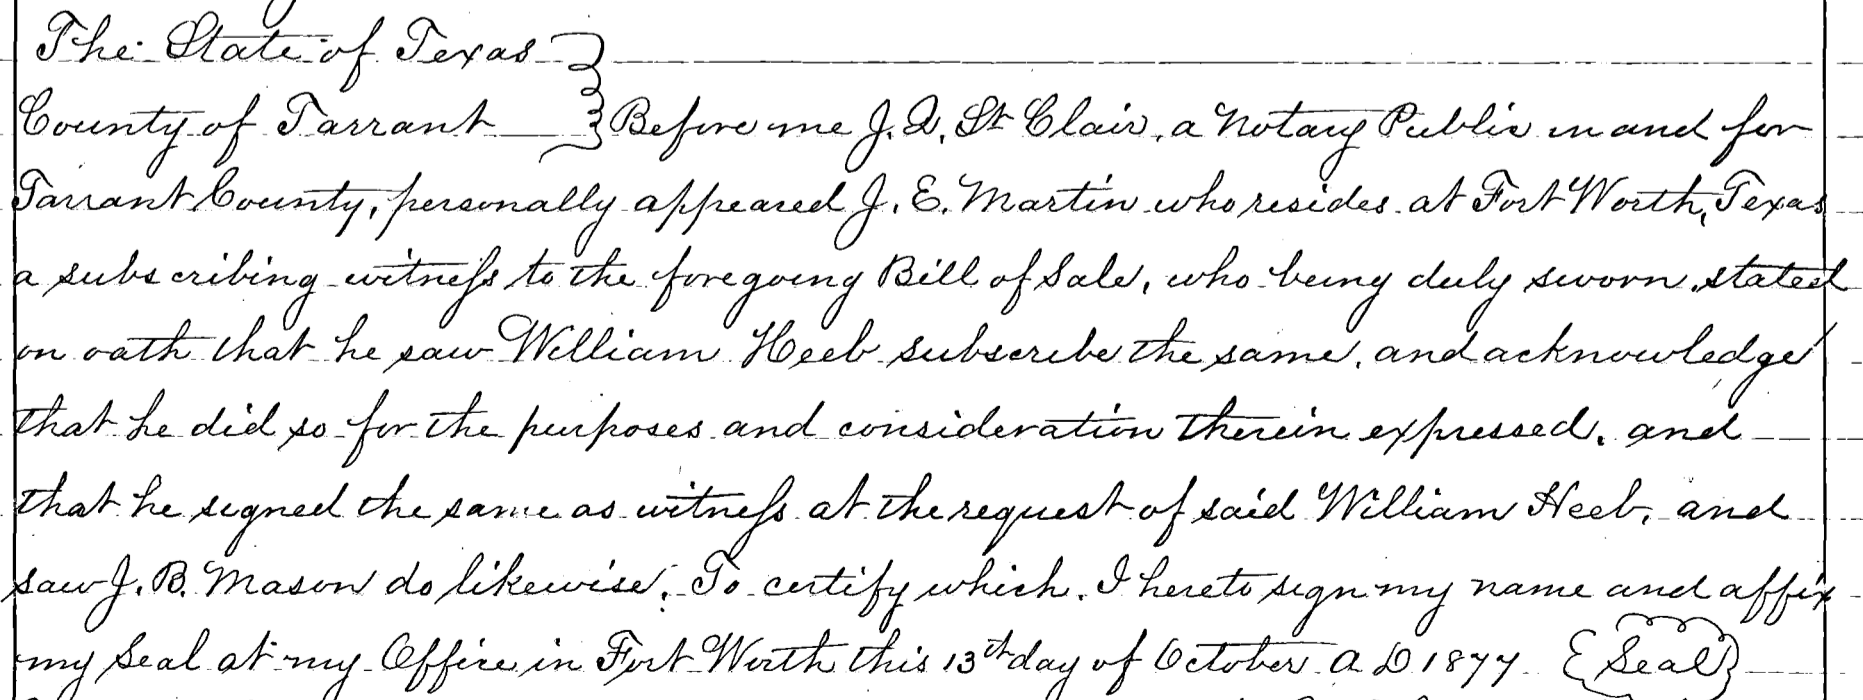 The State of Texas
County of Tarrant Before me J. Q. St Clair, a Notary Public in and for
Tarrant County, personally appeared J. E. Martin who resides at Fort Worth, Texas
a subscribing witness to the foregoing Bill of Sale, who being duly sworn, stated
on oath that he saw William Heeb subscribe the same, and acknowledge
that he did so for the purposes and consideration therein expressed, and
that he signed the same as witness at the request of said William Heeb, and
saw J. B. Mason do likewise. To certify which, I hereto sign my name and affix
my Seal at my Office in Fort Worth this 13th day of October A D 1877 {Seal}